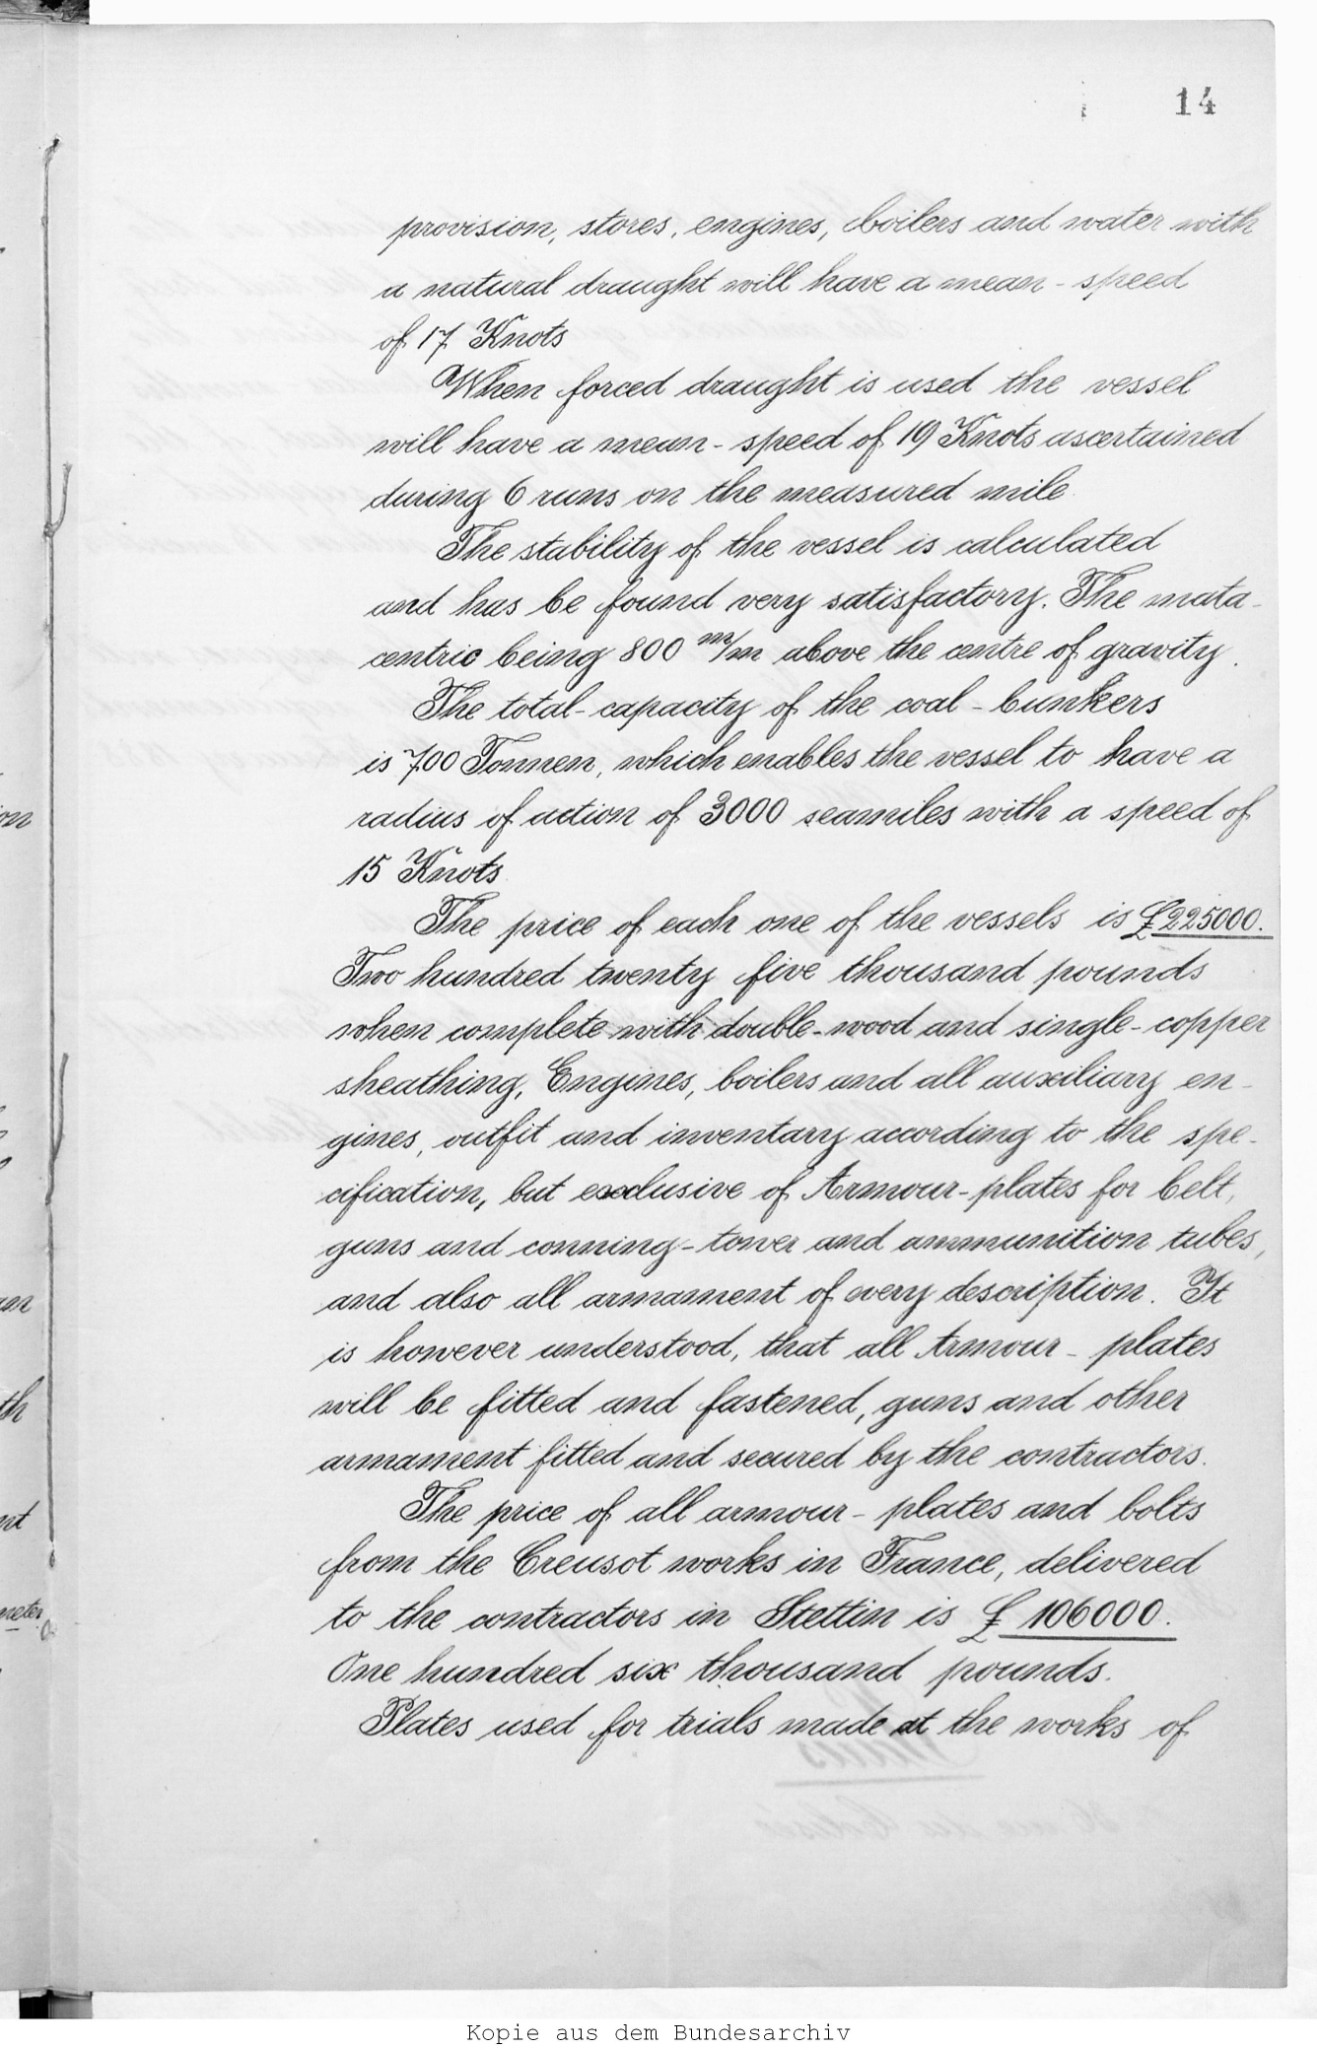 14
provision, stores, engines, boilers and water with
a natural draught will have a mean - speed
of 17 Knots
When forced draught is used the vessel
will have a mean - speed of 19 Knots ascertained
during 6 runs on the measured mile
The stability of the vessel is calculated
and has be found very satisfactory. The mata-
centric being 800 m/m above the centre of gravity.
The total - capacity of the coal - bunkers
is 700 Tonnen, which enables the vessel to have a
radius of action of 3000 seamiles with a speed of
15 Knots
The price of each one of the vessels is £225000.
Two hundred twenty five thousand pounds
when complete with double - wood and single - copper
sheathing, Engines, boilers and all auxiliary en-
gines, outfit and inventary according to the spe-
cification, but exclusive of Armour - plates for belt,
guns and conning - tower and ammunition tubes,
and also all armament of every description. It
is however understood, that all Armour - plates
will be fitted and fastened, guns and other
armament fitted and secured by the contractors.
The price of all armour - plates and bolts
from the Creusot works in France, delivered
to the contractors in Stettin is £ 106000.
One hundred six thousand pounds.
Plates used for trials made at the works of
Kopie aus dem Bundesarchiv